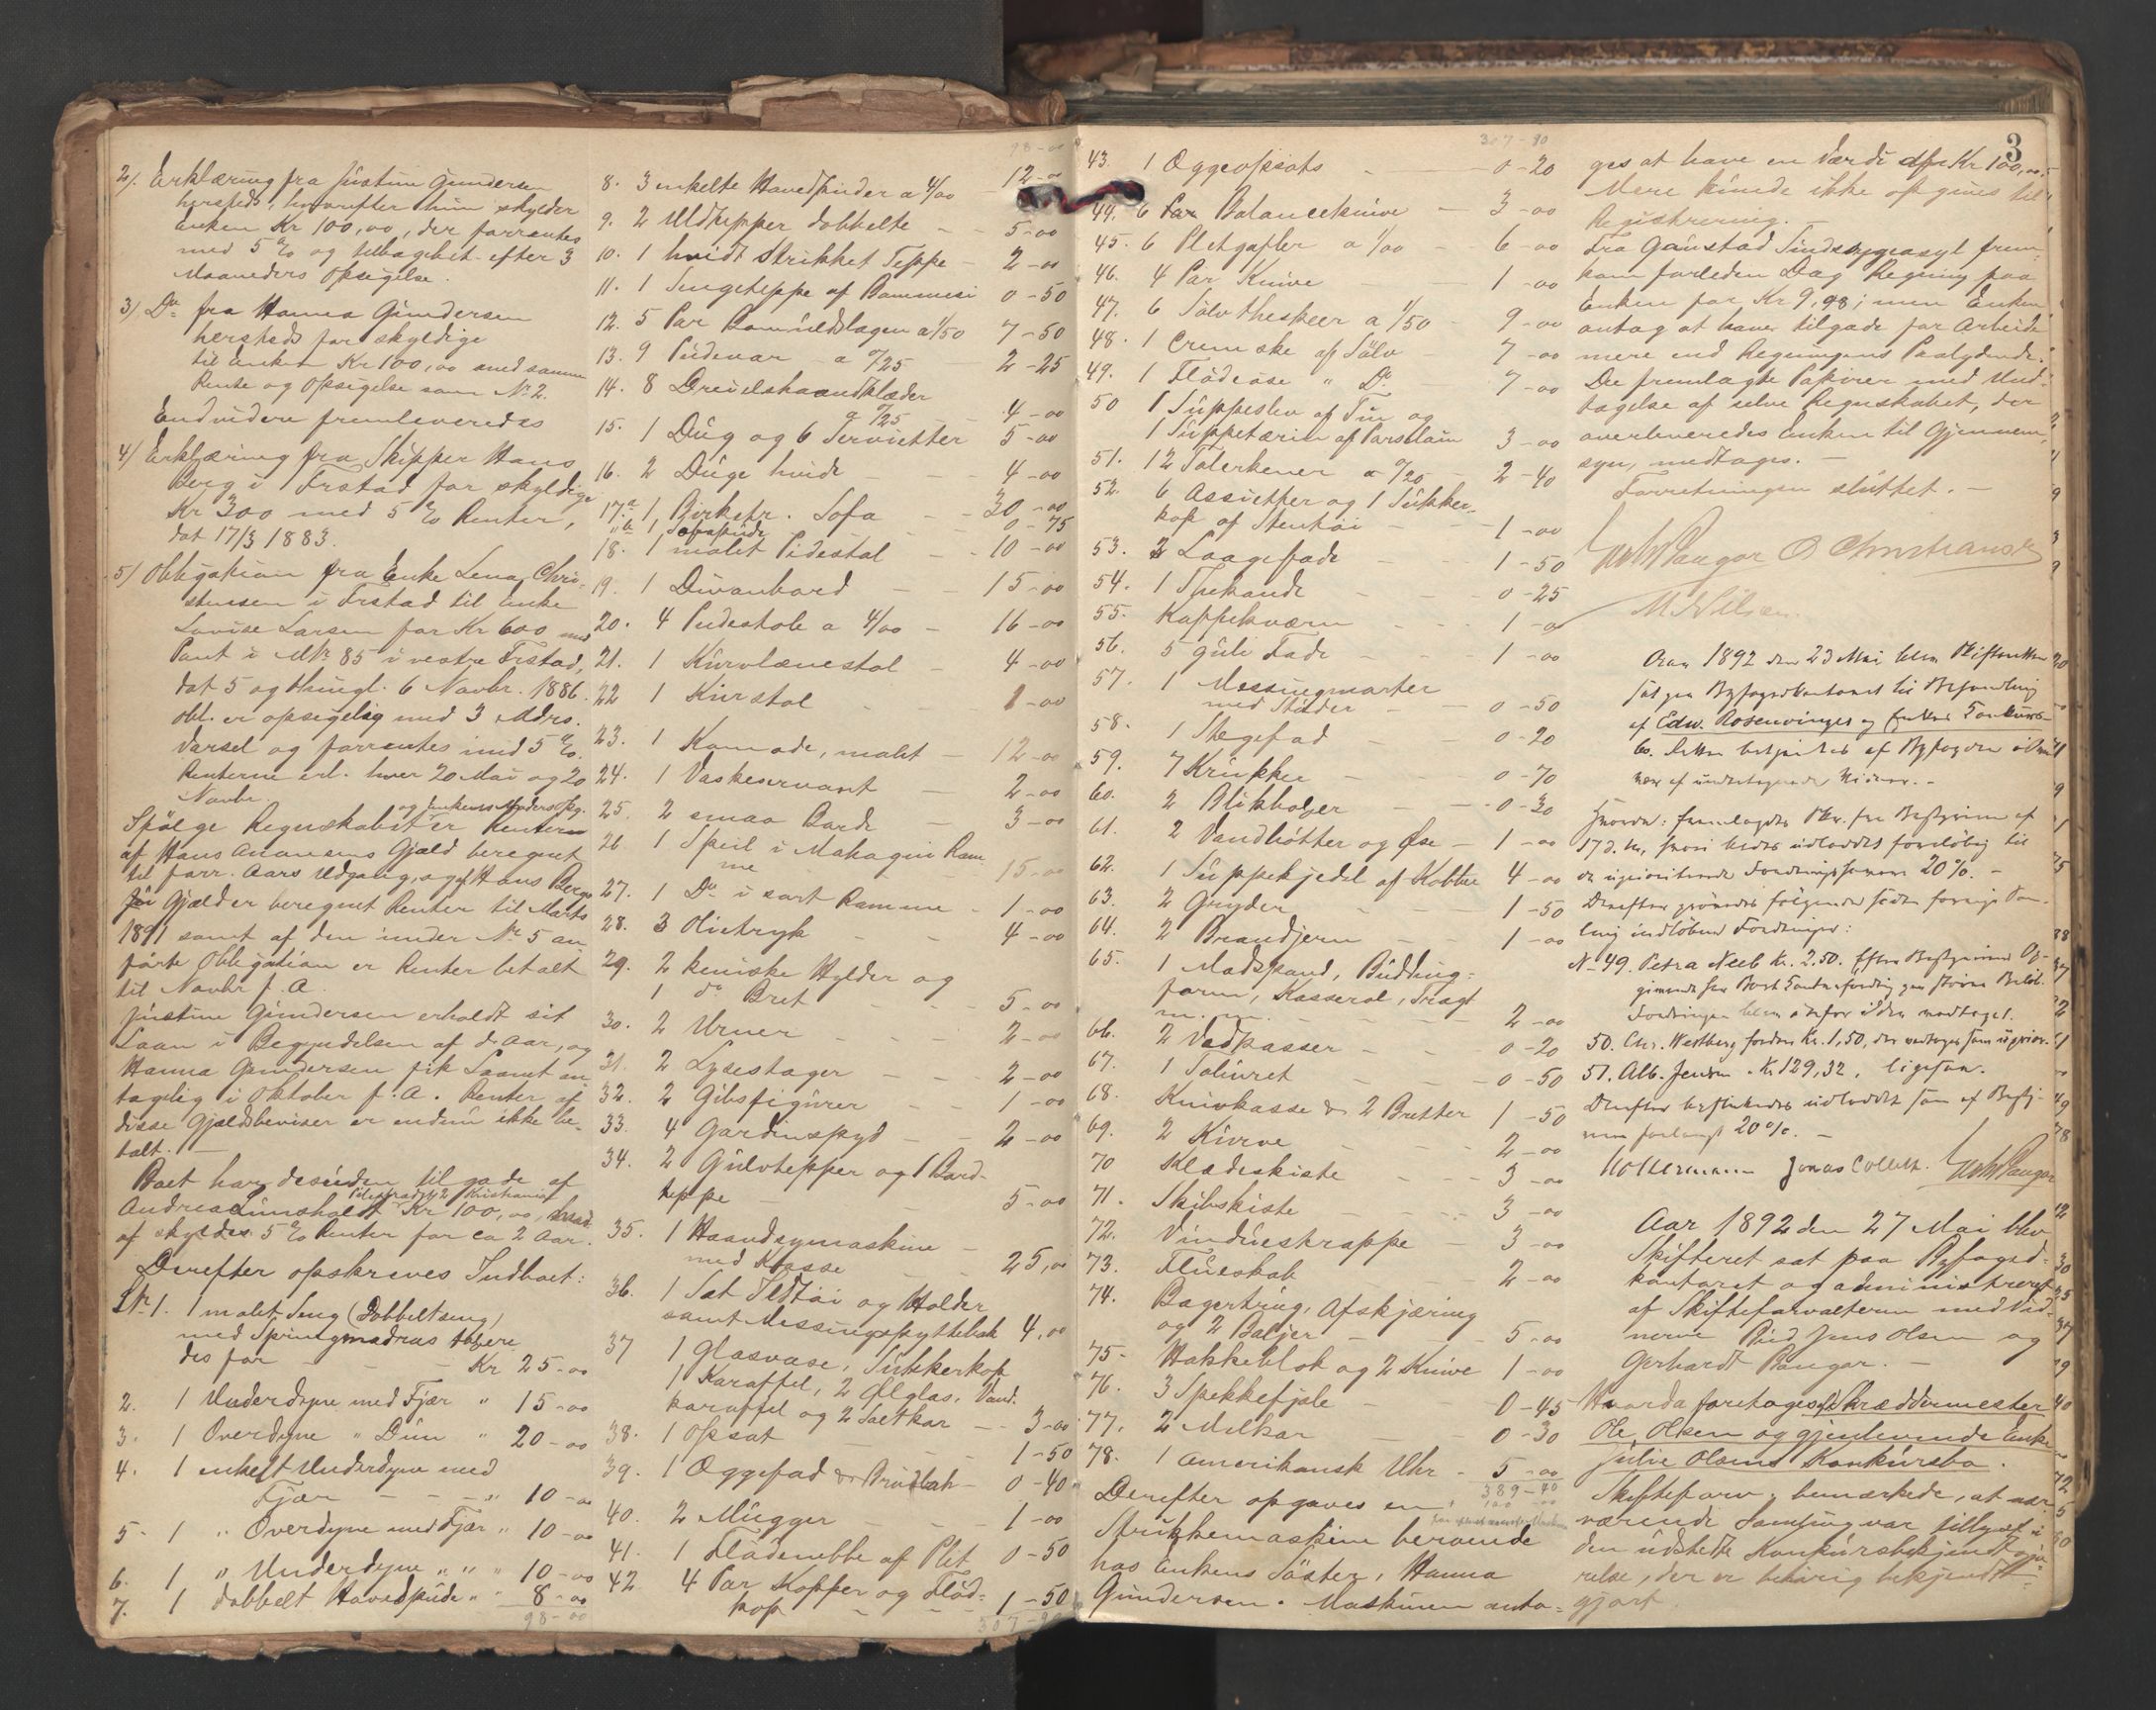 2/. Erklæring fra Justine Gundersen
hersteds, hvorefter hun skylder
Enken Kr 100,00, der forrentes
med 5 % og tilbagebet. efter 3
Maaneders Opsigelse.
3/ Do fra Hanna Gundersen
hersteds for skyldige
til Enken Kr 100,00 med samme
Rente og Opsigelse som No 2.
Endvidere fremleveredes
4/ Erklæring fra Skipper Hans
Berg i Frstad for skyldige
Kr 300 med 5 % Renter,
dat 17/3 1883.
5/ Obligation fra Enke Lena Chri-
stensen i Frstad til Enke
Lovise Larsen for Kr 600 med
Pant i MNr 85 i vestre Frstad,
dat 5 og thingl. 6 Novbr. 1886.
Obl. er opsigelig med 3 Mdrs.
Varsel og forrentes med 5 %.
Renterne erl. hver 20 Mai og 20
Novbr.
og Enkens Moders Opg.
Ifølge Regnskabet er Renterne
af Hans Gjæld beregnet
til forr. Aars Udgang, og af Hans Bergs
Gjæld er beregnet Renter til Marts
1891 samt af den under No 5 an-
førte Obligation er Renter betalt
til Novbr f. A.
Justine Gundersen erholdt sit
Laan i Begyndelsen af d. Aar, og
Hanna Gundersen fik Laanet an-
tagelig i Oktober f. A. Renter af
disse Gjældsbeviser er endnu ikke be-
talt. —
Boet har desuden tilgode af
Pilestrædet 2 Kristiania
Andrea Kr 100,00, hvoraf
skyldes 5 % Renter for ca 2 Aar.
Derefter opskreves Indboet:
No 1. 1 malet Seng (Dobbeltseng)
med Springmadras
des for Kr 25-00
2. 1 Underdyne med Fjær " 15-00
3. 1 Overdyne " Dun " 20-00
4. 1 enkelt Underdyne med
Fjær " 10-00
5. 1 " Overdyne med Fjær " 10-00
6. 1 " Underdyne " " " 10-00
7. 1 dobbelt Hovedpude " 8-00
98-00
98-00
8. 3 enkelte Hovedpuder a 4/00 12-00
9. 2 Uldtepper dobbelte 5-00
10. 1 hvidt Strikket Teppe 2-00
11. 1 Sengeteppe af Bommesi 0-50
12. 5 Par Bomuldslagen a 1/50 7-50
13. 9 Pudevar a 0/25 2-25
14. 8 Dreielshaandklæder
4-00
15. 1 Dug og 6 Servietter 5-00
16. 2 Duge hvide 4-00
17.a 1 Birketr. Sofa 30-00
" b 1 Sofapude 0-75
18. 1 malet Pidestal 10-00
19. 1 Divanbord 15-00
20. 4 Pudestole a 4/00 16-00
21. 1 Kurvlænestol 4-00
22 1 Kurstol 1-00
23. 1 Komode, malet 12-00
24. 1 Vaskeservant 2-00
25. 2 smaa Borde 3-00
26 1 Speil i Mahagni Ram-
me 15-00
27. 1 Do i sort Ramme 1-00
28. 3 Olietryk 4-00
29. 2 keniske Hylder og
1 do Bret 5-00
30. 2 Urner 2-00
31. 2 Lysestager 2-00
32. 2 Gibsfigurer 1-00
33. 4 Gardinspyd 2-00
34. 2 Gulvtepper og 1 Bord-
teppe 5-00
35. 1 Haandsymaskine
med Kasse 25,00
36. 1 Sæt Ildtøi og Holder
samt Messingspyttebak 4,00
37 1 Glasvase, Sukkerkop
1 Karaffel, 2 Ølglas, Vand-
karaffel og 2 Saltkar 3-00
38. 1 Opsat 1-50
39. 1 Æggefad & Brødbak 0-40
40. 2 Mugger 1-00
41. 1 Flødenebbe af Plet 0-50
42 4 Par Kopper og Flød-
kop 1-50
307-90
307-90
43. 1 Æggeopsats 0-20
44. 6 Par Balanceknive 3-00
45. 6 Pletgafler a 1/00 6-00
46. 4 Par Knive 1-00
47. 6 Sølvtheskeer a 1/50 9-00
48. 1 Cremske af Sølv 7-00
49. 1 Flødeøse " Do 7-00
50 1 Suppeslev af Tin og
1 Suppeterin af Porselain 3-00
51. 12 Talerkener a 0/20 2-40
52. 6 Assietter og 1 Sukker-
kop af Stentøi 1-00
53. 2 Laagefade 1-50
54. 1 Thekande 0-25
55. Kaffekværn 1-00
56. 5 gule Fade 1-00
57. 1 Messingmorter
med Støder 0-50
58. 1 Stegefad 0-20
59. 7 Krukker 0-70
60. 2 Blikbolger 0-30
61. 2 Vandbøtter og Øse 1-00
62. 1 Suppekjedel af Kobber 4-00
63. 2 Gryder 1-50
64. 2 Brandjern 1-00
65. 1 Madspand, Budding-
form, Kasserol, Tragt
m. m. 2-00
66. 2 Vedkasser 0-20
67. 1 Toliuret 0-50
68. Knivkasse & 2 Bretter 1-50
69. 2 Kurve 2-00
70 Klædeskiste 3-00
71. Skibskiste 3-00
72. Vinduestrappe 3-00
73. Flueskab 2-00
74. Bagertrug, Afskjæring
og 2 Baljer 5-00
75. Hakkeblok og 2 Knive 1-00
76. 3 Spekkefjøle 0-45
77. 2 Melkar 0-30
78. 1 Amerikansk Uhr 5-00
389-40
Derefter opgaves en
Strikkemaskine beroende
hos Enkens Søster, Hanna
Gundersen. Maskinen anta-
3
ges at have en Værdi af Kr 100,00.
Mere kunde ikke opgives til
Registrering. —
Fra Gaustad Sindssygeasyl frem-
kom forleden Dag Regning paa
Enken for Kr 9,98; men Enken
antog at have tilgode for Arbeide
mere end Regningens Paalydende.
De fremlagte Papirer med Und-
tagelse af selve Regnskabet, der
overleveredes Enken til Gjennem-
syn, medtages. —
Forretningen sluttet. —
Gerh Pangar O Christiansen
M Nilsen.
Aar 1892 den 23 Mai blev Skifteretten
sat paa Byfogedkontoret til Behandling
af Edw. Rosenvinges og Konkurs-
bo. Retten betjentes af Byfogden
af undertegnede Vidner. -
Hvorda: fremlagdes Skr. fra Bestyreren af
17 d. M., hvori bedes udloddet foreløbig til
de uprioriterede Fordringshavere 20%. -
Derefter prøvedes følgende siden forrige Sam-
ling indløbne Fordringer:
No 49. Petra Neeb Kr. 2,50. Efter Bestyrerens Op-
givende
Fordringen blev medtaget.
50. Chr. Westberg fordrer Kr. 1,50, der medtages som uprior.
51. Alb. Jensen " Kr 129,32, ligesaa.
Derefter besluttedes udloddet som af Besty-
reren forlangt 20%. —
Jonas Collett. Gerh Pangar
Aar 1892 den 27 Mai blev
Skifteret sat paa Byfoged-
kontoret og administreret
af Skifteforvalteren med Vid-
nerne Rud Jens Olsen og
Gerhardt Pangar. —
Hvorda foretoges Skræddermester
Ole Olsen og gjenlevende Enke
Julie Olsens Konkursbo.
Skifteforv. bemærkede, at nær-
værende Samling var tillyst i
den udstedte Konkursbekjendtgjø-
relse, der er behørig bekjendt-
gjort.